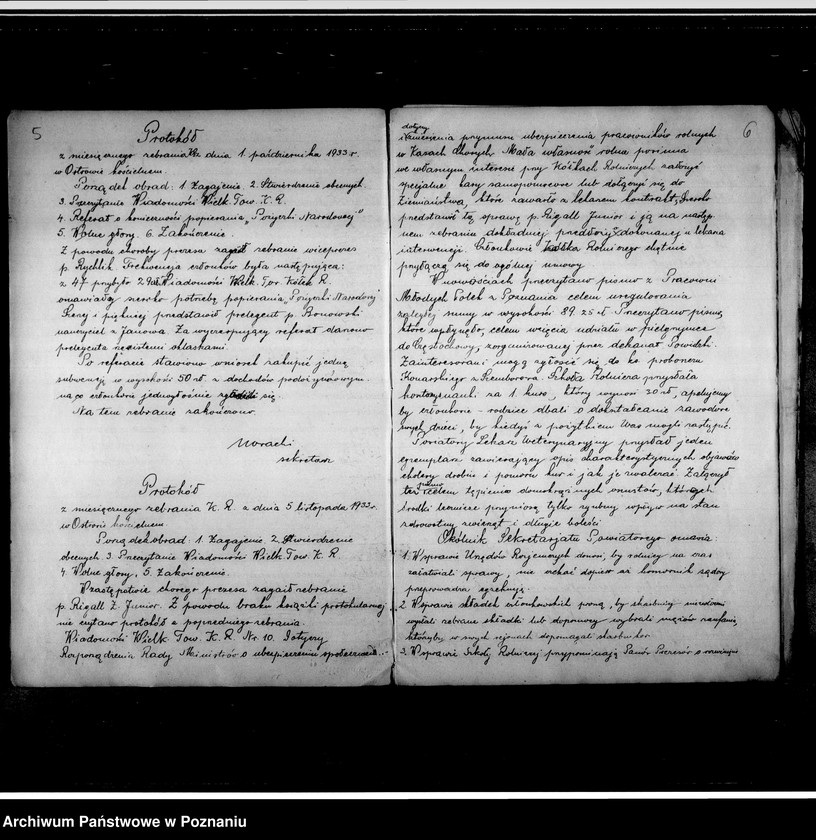 5
Protokół
z miesięcznego zebrania Kr dnia 1. października 1933 r.
w Ostrowie kościelnem.
Porządek obrad: 1 Zagajenie 2. Stwierdzenie obecnych
3. Przeczytanie Wiadomości Wielk. Tow. K. R.
4. Referat o konieczności popierania „Pożyczki Narodowej"
5. Wolne głosy. 6. Zakończenie.
Z powodu choroby prezesa zagaił zebranie wiceprezes
p. Rychlik Frekwencja członków była następująca:
z 47 przybyło 29 Wiadomości Wielk. Tow. Kółek R.
omawiały szeroko potrzebę popierania „Pożyczki Narodowej"
Szerzej i piękniej przedstawił prelegent p.
nauczyciel z Janowa. Za wyczerpujący referat darzono
prelegenta rzęsistemi oklaskami.
Po referacie stawiono wniosek zakupić jedną
subwencję w wysokości 50 zł. z dochodów
na co członkowie jednogłośnie zgodzili się.
Na tem zebranie zakończono.
sekretarz
Protokół
z miesięcznego zebrania K. R. z dnia 5 listopada 1933 r.
w Ostrowie kościelnem.
Porządek obrad: 1. Zagajenie 2. Stwierdzenie
obecnych 3. Przeczytanie Wiadomości Wielk. Tow. K. R.
4. Wolne głosy, 5. Zakończenie.
W zastępstwie chorego prezesa zagaił zebranie
p. Rigall Z. Junior. Z powodu braku książki protokularnej
nie czytano protokół z poprzedniego zebrania.
Wiadomości Wielk. Tow. K. R. Nr. 10. Dotyczy
Rozporządzenia Rady Ministrów o ubezpieczeniu społecznem
6
dotyczy
zniesienia przymusu ubezpieczenia pracowników rolnych
w Kasach Chorych. Mała własność rolna powinna
we własnym interesie przy Kółkach Rolniczych założyć
specjalne kasy samopomocowe lub dołączyć się do
Ziemiaństwa, które zawarło z lekarzem kontrakt. Szeroko
przedstawił tę sprawę p. Rigall Junior i ją na następ
nem zebraniu dokładniej przedłoży z dokonanej u lekarza
interwencji. Członkowie Kółka Rolniczego chętnie
przyłączą się do ogólnej umowy
W nowościach przeczytano pismo z Pracowni
Młodych Polek z Poznania celem uregulowania
zaległej sumy w wysokości 89.25 zł. Przeczytano pismo,
które wpłynęło, celem wzięcia udziału w pielgrzymce
do Częstochowy, zorganizowanej przez dekanat Powidzki.
Zainteresowani mogą zgłosić się do ks. proboszcza
Konarskiego z Szemborowa. Szkoła Rolnicza przysłała
za 1 kurs, który wynosi 30 zł, apelujemy
by członkowie - rodzice dbali o dokształcanie zawodowe
swych dzieci, by kiedyś z pożytkiem Was mogli zastąpić.
Powiatowy Lekarz Weterynaryjny przysłał jeden
egzemplarz zawierający opis charakterystycznych objawów
cholery drobiu i pomoru kur i jak je zwalczać. Załączył
też pismo celem tępienia domokrążnych oszustów, których
środki lecznicze przyniosą tylko zgubny wpływ na stan
zdrowotny zwierząt i długie boleści.
Okólnik Sekretarjatu Powiatowego omawia:
1. W sprawie Urzędów Rozjemczych donosi, by rolnicy na czas
załatwiali sprawy, nie czekać dopiero aż komornik sądowy
przeprowadza egzekucję.
2 W sprawie składek członkowskich proszą, by skarbnicy
wysłali zebrane składki lub dopomocy wybrali mężów zaufania,
którzyby w swych rejonach dopomagali skarbnikom.
3. W sprawie Szkoły Rolniczej przypominają Panów Prezesów o
Archiwum Państwowe w Poznaniu